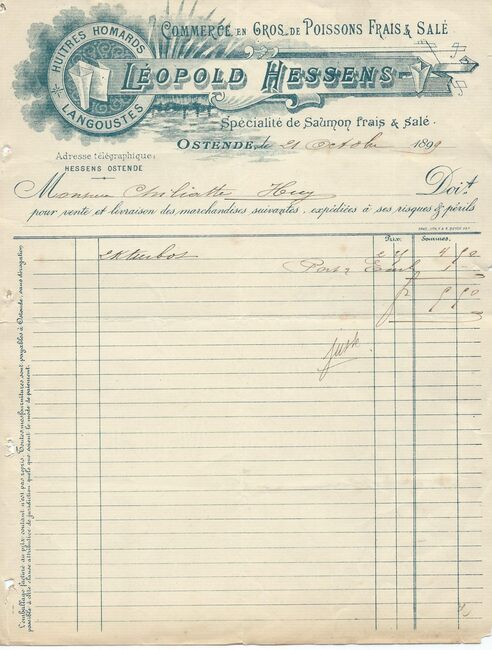 COMMERCE EN GROS DE POISSONS FRAIS & SALÉ
HUITRES HOMARDS
LANGOUSTES
LÉOPOLD HESSENS
Spécialité de Saumon frais & salé.
Adresse télégraphique:
HESSENS OSTENDE
OSTENDE, le 21 Octobre 1899
Monsieur Huy Doit
pour vente et livraison des marchandises suivantes, expédiées à ses risques & périls
Prix: Sommes:
2 K turbot
Port & Emb
fr
L'emballage facturé au prix coûtant n'est pas repris. Toutes mes fournitures sont payables à Ostende, sans dérogation
possible à cette clause attributive de juridiction quels que soient le mode de paiement.